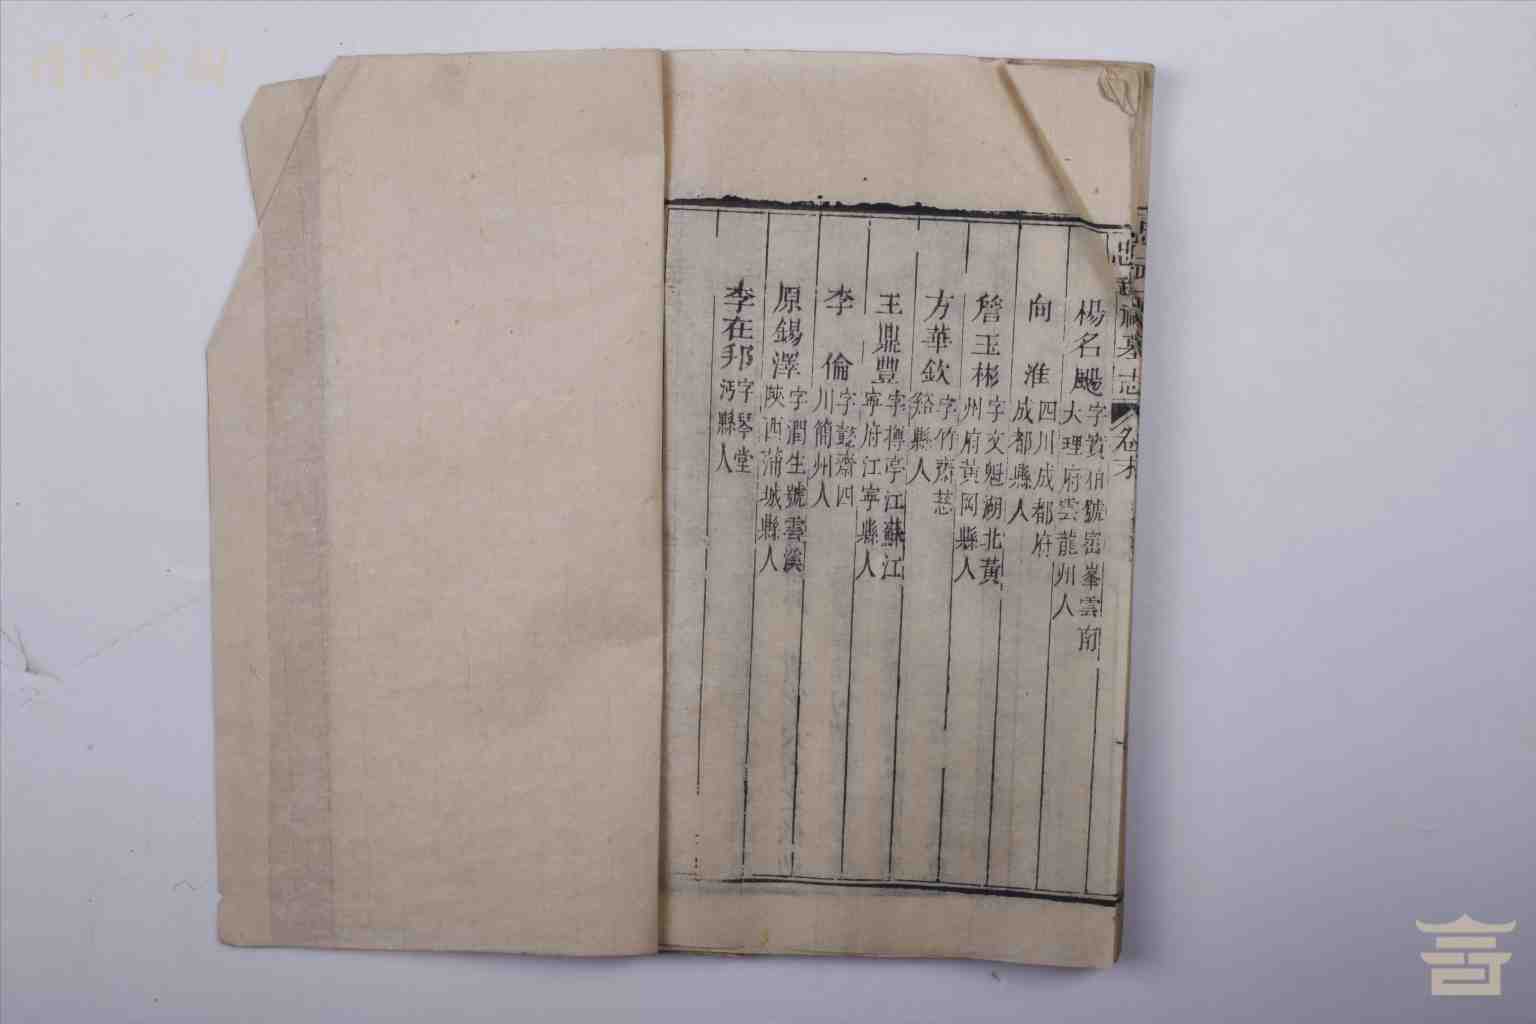 忠武祠墓志 卷末
楊名颺 字賓伯號崈峯雲南
大理府雲龍州人
向淮 四川成都府
成都縣人
詹玉彬 字文魁湖北黃
州府黃岡縣人
方華欽 字竹齋慈
谿縣人
王鼎豐 字樽亭江蘇江
寧府江寧縣人
李倫 字懿齋四
川簡州人
原錫澤 字潤生號雲溪
陝西蒲城縣人
李在邦 字琴堂
沔縣人